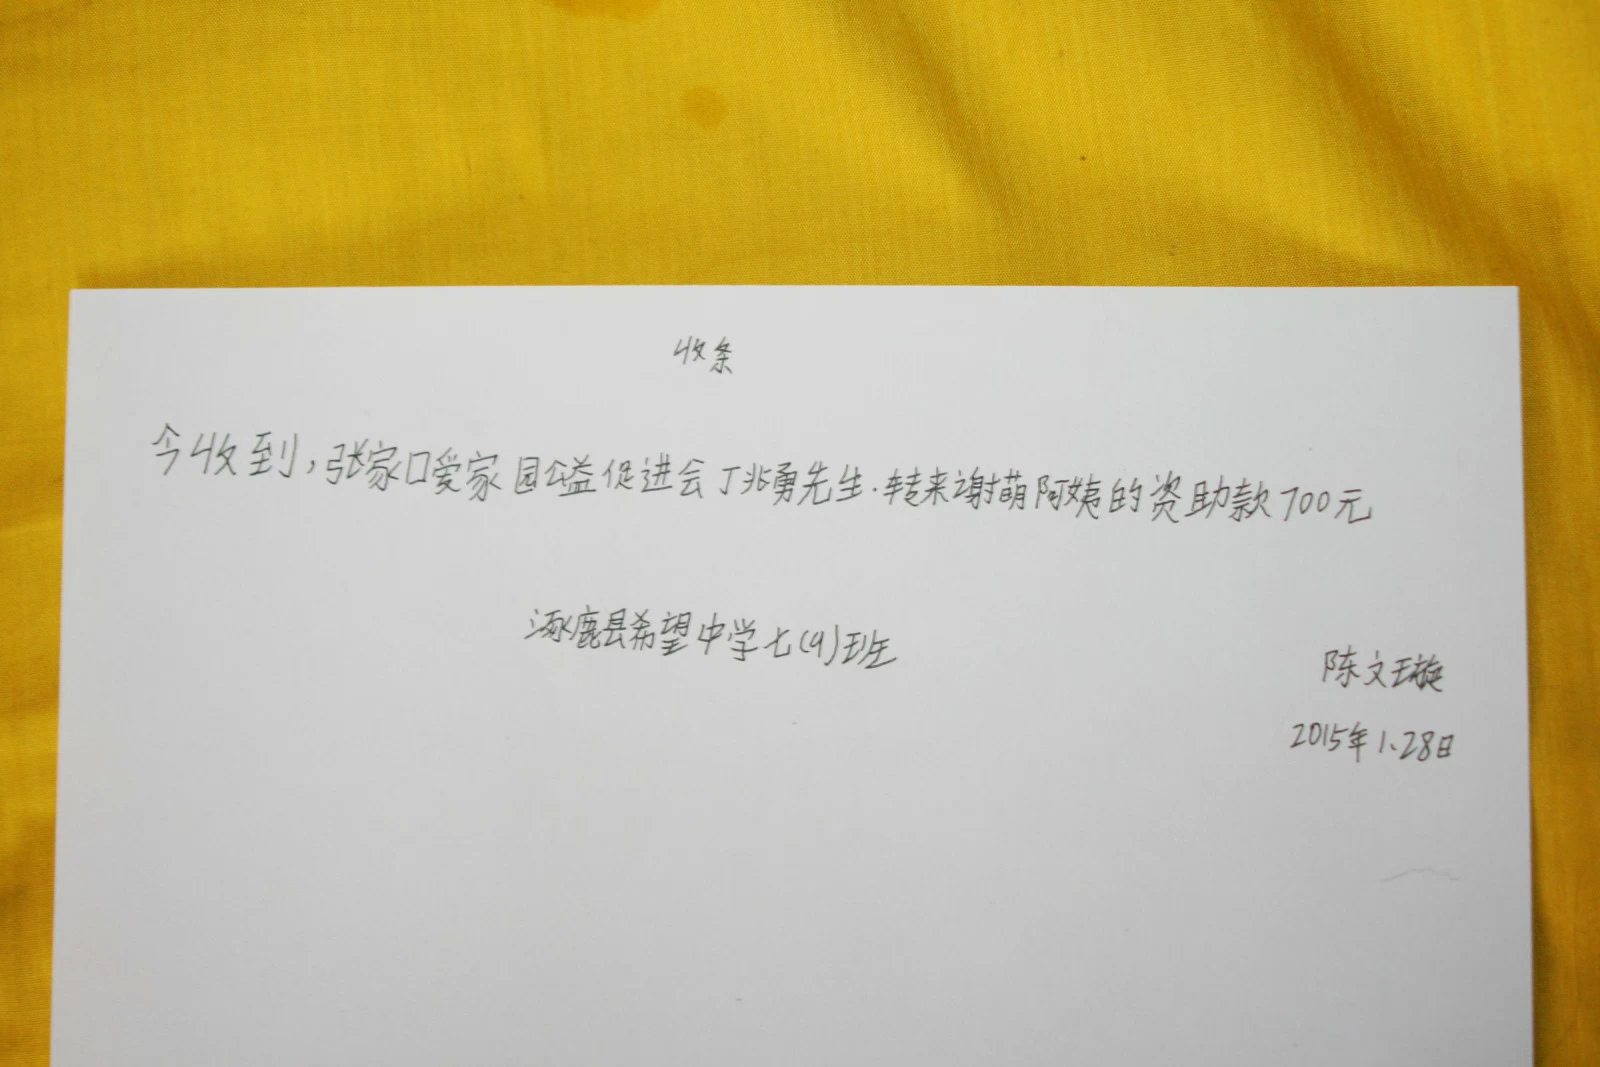 收条
今收到，张家口爱家园公益促进会丁兆勇先生.转来谢萌阿姨的资助款700元
涿鹿县希望中学七(9)班
陈文璇
2015年1.28日